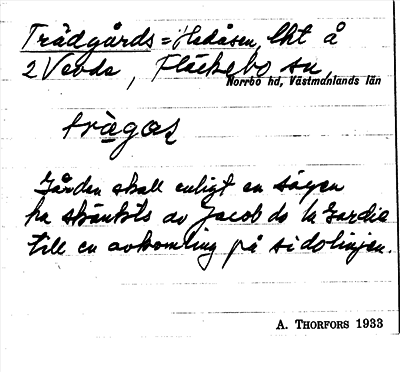 Trädgårds=Hedåsen, lht å
2 Vevde, Fläckebo sn,
Norrbo hd, Västmanlands län
trägas
Gården skall enligt en sägen
ha skänkts av Jacob de la Gardie
till en avkomling på sidolinjen.
A. THORFORS 1933